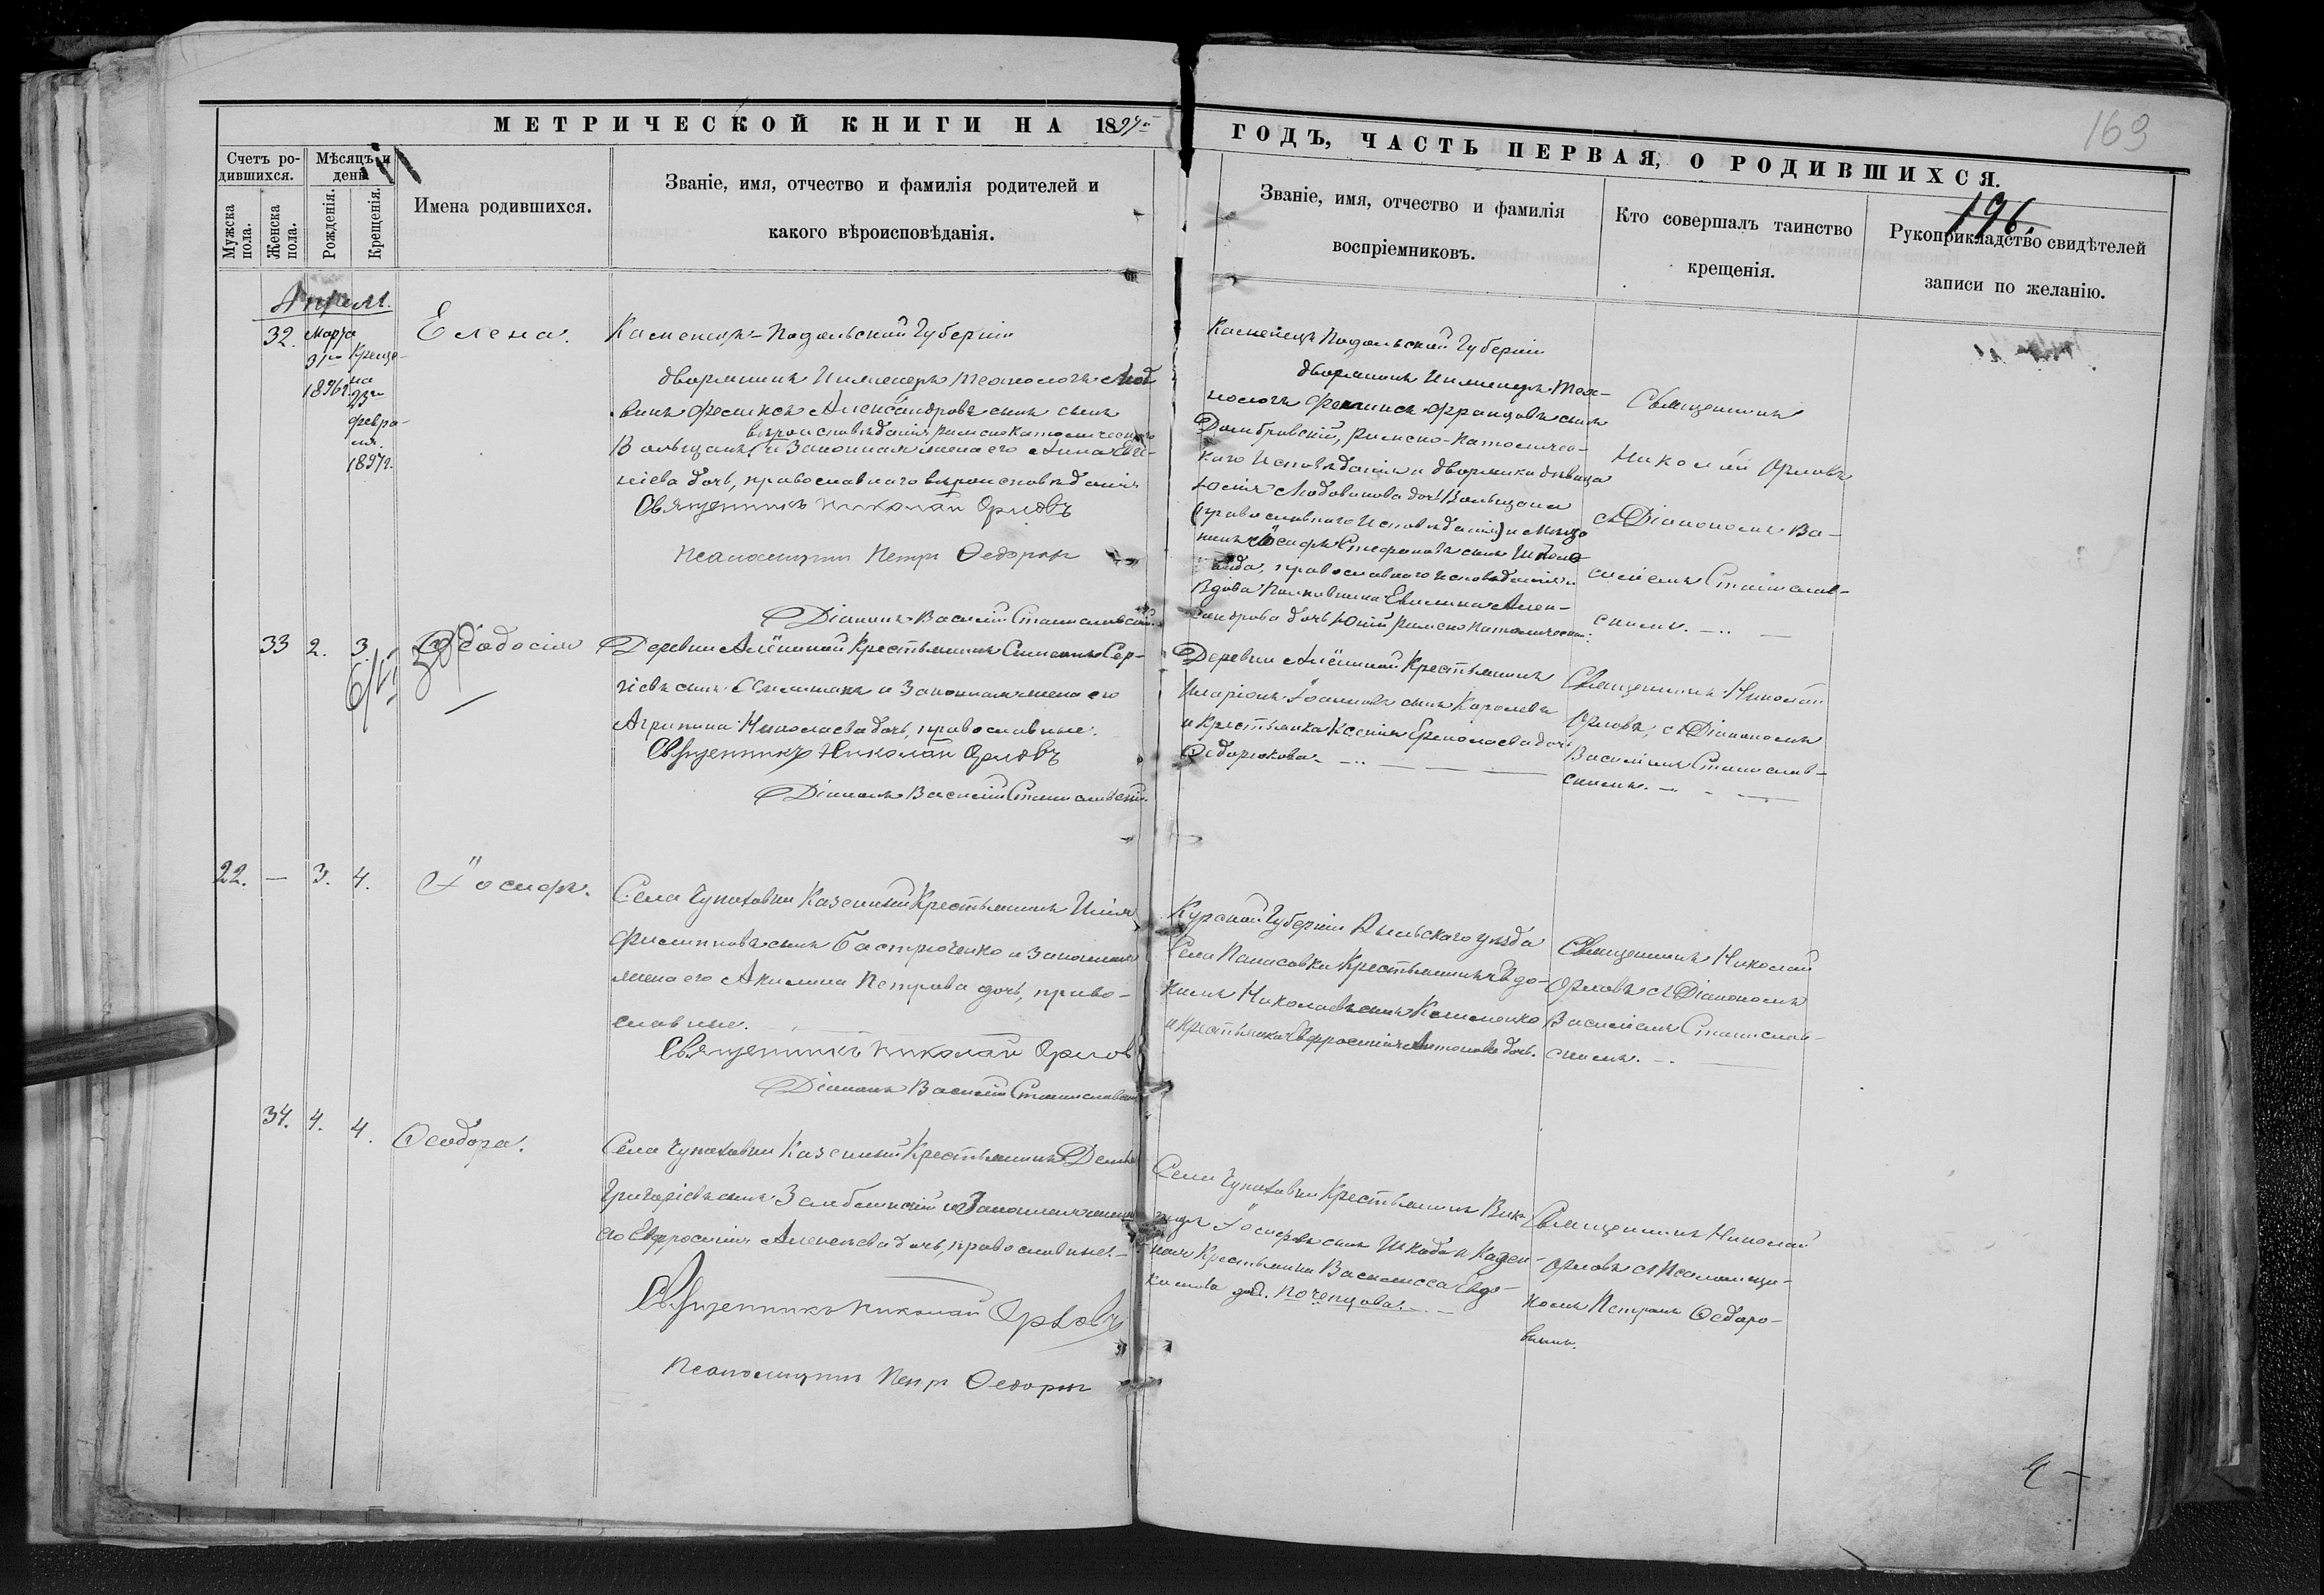 МЕТРИЧЕСКОЙ КНИГИ НА 1897й
ГОДЪ, ЧАСТЬ ПЕРВАЯ, О РОДИВШИХСЯ.
169
196.
Счетъ ро-
дившихся.
Мѣсяцъ и
день
Мужска
пола.
Женска
пола.
Рожденія.
Крещенія.
Имена родившихся.
Званіе, имя, отчество и фамилія родителей и
какого вѣроисповѣданія.
Званіе, имя, отчество и фамилія
воспріемниковъ.
Кто совершалъ таинство
крещенія.
Рукоприкладство свидѣтелей
записи по желанію.
Апрѣль.
32.
Марта
31го
1896г.
Креще-
на
23го
февра-
ля.
1897г.
Елена.
Каменецъ-Подольской Губерніи
дворянинъ Инженеръ технологъ Люд
викъ Феликсъ Александровъ сынъ
вѣроисповѣданія римско католическаго
и Законная жена его Анна Евге-
ніева дочь, православнаго вѣроисповѣданія
Священникъ Николай Орловъ
Псаломщикъ Петръ Ѳедоровъ
Діаконъ Василій Станиславскій.
Каменецъ Подольской Губерніи
дворянинъ Инженеръ-Тех-
нологъ Феликсъ Францовъ сынъ
Домбровскій, римско-католичес-
каго Исповѣданія и дворянка дѣвица
Юлія Людовикова дочь
(православнаго Исповѣданія) и Мѣща
нинъ Іосифъ Стефановъ сынъ
православнаго исповѣданія и
Вдова Полковника Евелина Алек-
сандрова дочь Юній римско католическ.
Священникъ
Николай Орловъ
съ Діакономъ Ва-
силіемъ Станислав-
скимъ.
33
2.
3.
Ѳеодосія
Деревни Алёшиной Крестьянинъ Симеонъ Сер-
гіевъ сынъ и Законная жена его
Агрипина Николаева дочь, православные.
Священникъ Николай Орловъ
Діаконъ Василій Станиславскій.
Деревни Алёшиной Крестьянинъ
Иларіонъ Іоанновъ сынъ Королевъ
и Крестьянка Ксенія Ермолаева доч
Ѳедорюкова.
Священникъ Николай
Орловъ, съ Діакономъ
Василіемъ Станислав-
скимъ.
22.
—
3.
4.
Іосифъ.
Села Чупаховки Казенный Крестьянинъ Илія
Филипповъ сынъ Бастрюченко и Законная
жена его Акилина Петрова дочь, право-
славные.
Священникъ Николай Орловъ
Діаконъ Василій Станиславскій
Курской Губерніи Рыльскаго уѣзда
Села Крестьянинъ Евдо-
кимъ Николаевъ сынъ
и крестьянка Евфросинія Антонова дочь.
Священникъ Николай
Орловъ съ Діакономъ
Василіемъ Станислав-
скимъ.
34.
4.
4.
Ѳеодора.
Села Чупаховки Казенный Крестьянинъ
Григоріевъ сынъ и Законная жена
его Евфросинія Алексеева дочь, православные.
Священникъ Николай Орловъ
Псаломщикъ Петръ Ѳедоровъ
Села Чупаховки Крестьянинъ Вик-
Іосифовъ сынъ Шкода и Казен-
ная Крестьянка Василисса Евдо-
кимова доч. Поченцова.
Священникъ Николай
Орловъ съ Псаломщи-
комъ Петромъ Ѳедоро-
вымъ.